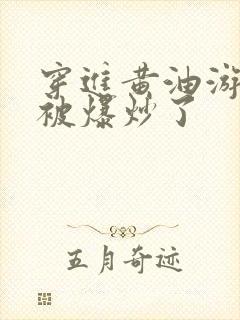 穿进黄油游
被爆炒了
五月奇迹